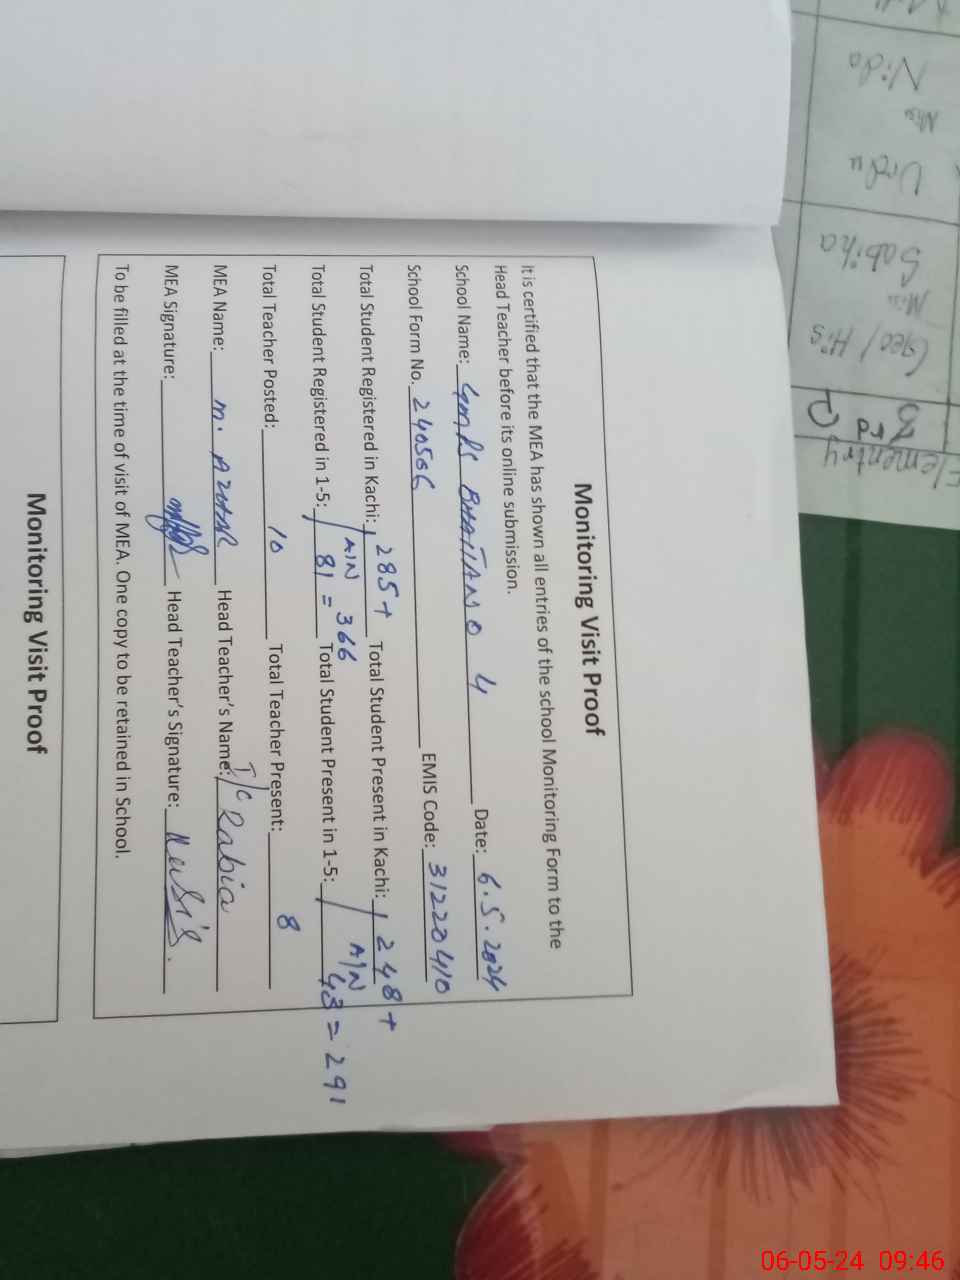 Monitoring Visit Proof
It is certified that the MEA has shown all entries of the school Monitoring Form to the
Head Teacher before its online submission.
School Name: GMPS BHATIANO 4 Date: 6.5.2024
School Form No. 240506 EMIS Code: 31220410
Total Student Registered in Kachi: 285+ Total Student Present in Kachi: 248+
AIN 366 AIN
Total Student Registered in 1-5: 81 = Total Student Present in 1-5: 43 = 291
Total Teacher Posted: 10 Total Teacher Present: 8
MEA Name: M. AZHAR Head Teacher's Name: I/C Rabia
MEA Signature: Head Teacher's Signature:
To be filled at the time of visit of MEA. One copy to be retained in School.
Monitoring Visit Proof
Elementry
3rd
Geo/His
Miss
Sabiha
Urdu
Miss
Nida
06-05-24 09:46